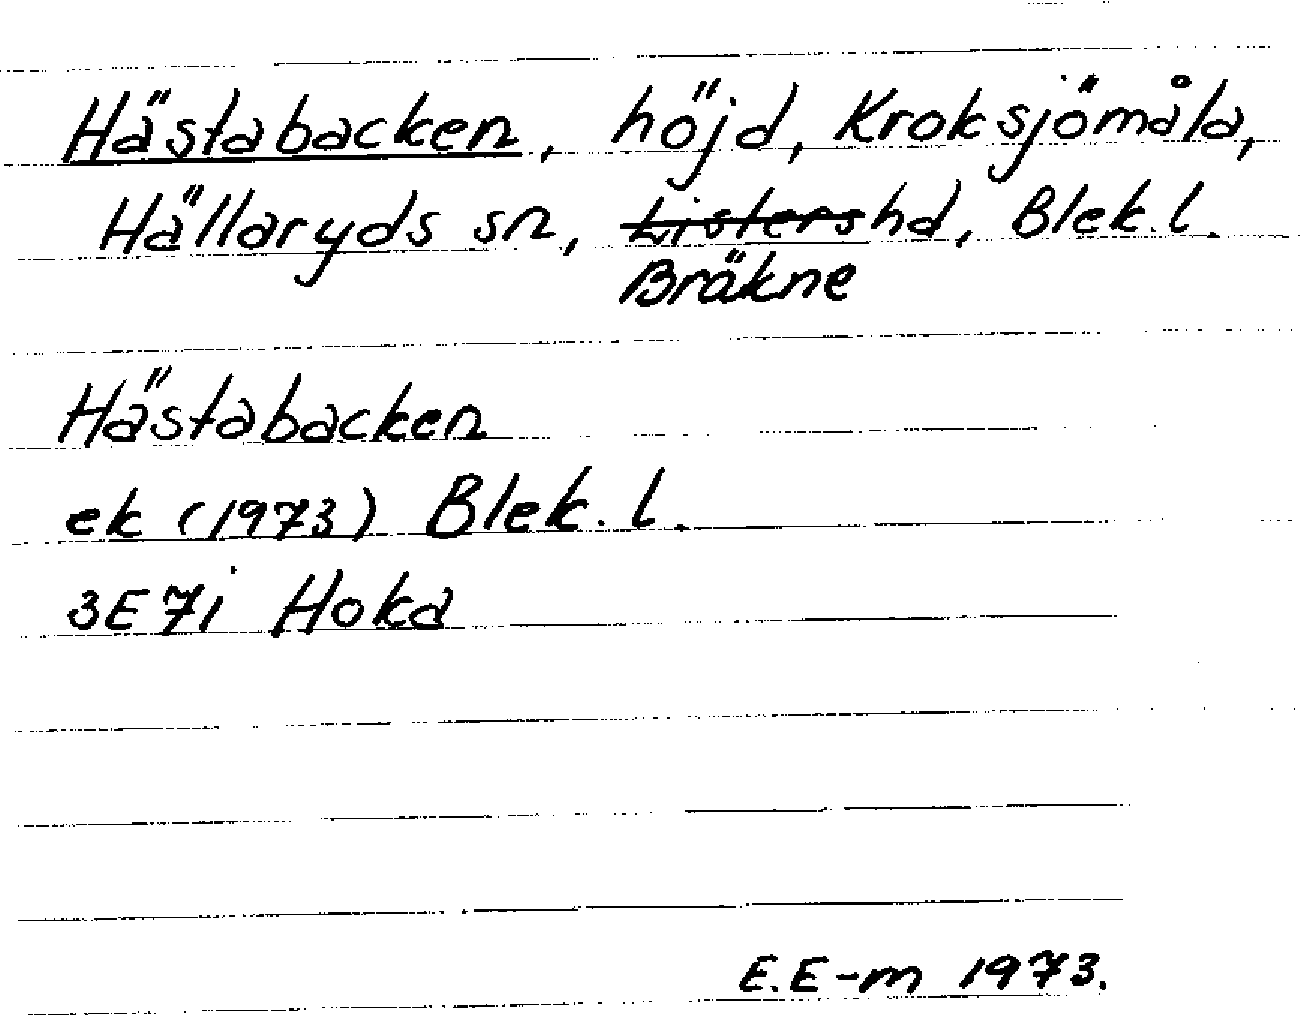 Hästabacken, höjd, Kroksjömåla,
Hällaryds sn, Listers hd, Blek. l.
Bräkne
Hästabacken
ek (1973) Blek. l.
3E7i Hoka
E.E-m 1973.